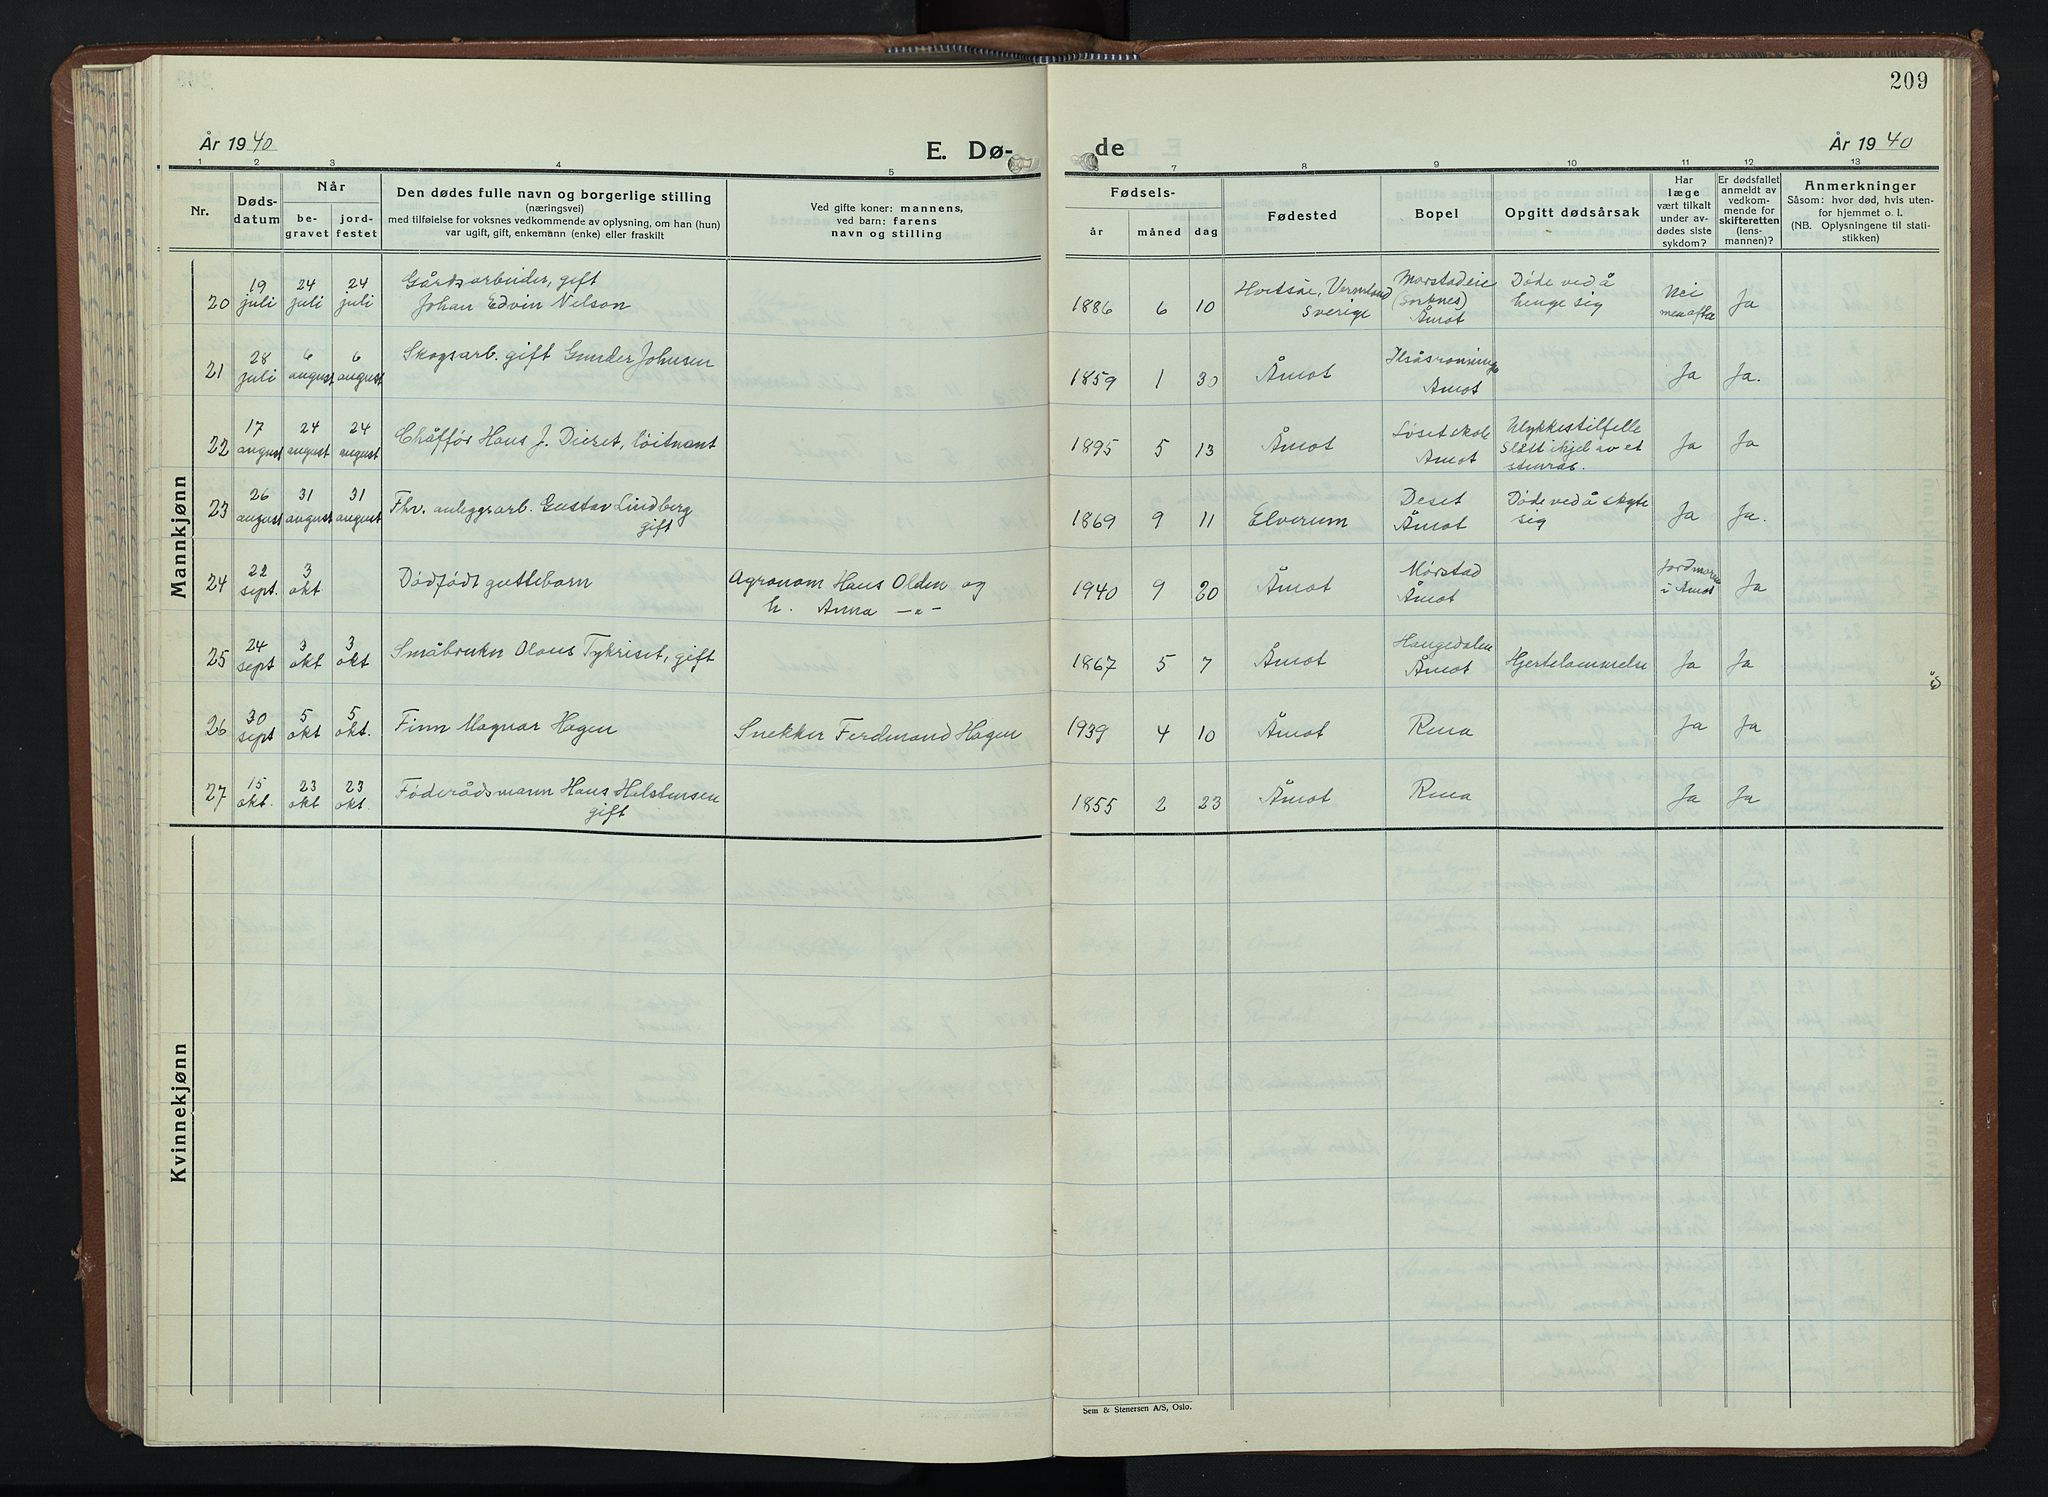 209
År 1940
E. Dø-
de
År 1940
1 2 3 4 5 6 7 8 9 10 11 12 13
Nr.
Døds-
datum
Når
be-
gravet
jord-
festet
Den dødes fulle navn og borgerlige stilling
(næringsvei)
med tilføielse for voksnes vedkommende av oplysning, om han (hun)
var ugift, gift, enkemann (enke) eller fraskilt
Ved gifte koner: mannens,
ved barn: farens
navn og stilling
Fødsels-
år
måned
dag
Fødested
Bopel
Opgitt dødsårsak
Har
læge
vært tilkalt
under av-
dødes siste
sykdom?
Er dødsfallet
anmeldt av
vedkom-
mende for
skifteretten
(lens-
mannen)?
Anmerkninger
Såsom: hvor død, hvis uten-
for hjemmet o. l.
(NB. Oplysningene til stati-
stikken)
Mannkjønn
20 19 juli 24 juli 24 juli
Gårdsarbeider, gift
Johan Edvin Nelson
1886 6 10
Vermland
Sverige
Morstadeie
(Sorknes)
Åmot
Døde ved å
henge sig
Nei
Ja
21 28 juli 6 august 6 august
Skogsarb. gift Gunder Johnsen
1859 1 30 Åmot
Åmot
Ja Ja.
22 17 august 24 august 24 august
Chåffør Hans J. Deset, løitnant
1895 5 13 Åmot
Løset skole
Åmot
Ulykkestilfelle
Slått ihjel av et
stenras.
Ja Ja
23 26 august 31 august 31 august
Fhv. anleggsarb. Gustav Lindberg
gift
1869 9 11 Elverum
Deset
Åmot
Døde ved å skyte
sig
Ja Ja.
24 22 sept. 3 okt
Dødfødt guttebarn
Agronom Hans Olden og
h. Anna —"—
1940 9 20 Åmot
Mørstad
Åmot
Jordmoren
i Åmot
Ja
25 24 sept 3 okt 3 okt.
Småbruker Olaus Tykriset, gift
1867 5 7 Åmot
Haugedalen
Åmot
Hjertelammelse
Ja Ja
26 30 sept 5 okt 5 okt.
Finn Magnar Hagen
Snekker Ferdinand Hagen
1939 4 10 Åmot
Rena
Ja Ja
27 15 okt. 23 okt 23 okt.
Føderådsmann Hans Halstensen
gift
1855 2 23 Åmot
Rena
Ja Ja
Kvinnekjønn
Sem & Stenersen A/S, Oslo.